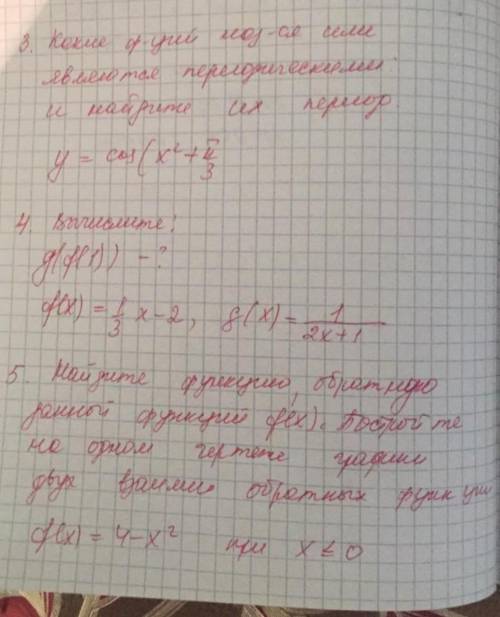 3. Какие ф-ций наз-ся или
являются периодическими
и найдите их период
y = cos(x² + π/3
4. Вычислите!
g(f(1)) - ?
f(x) = 1/3 x - 2, g(x) = 1/2x+1
5. Найдите функцию, обратную
данной функций f(x). Постройте
на одном чертеже графики
двух взаимно обратных функции
f(x) = 4 - x² при x ≤ 0